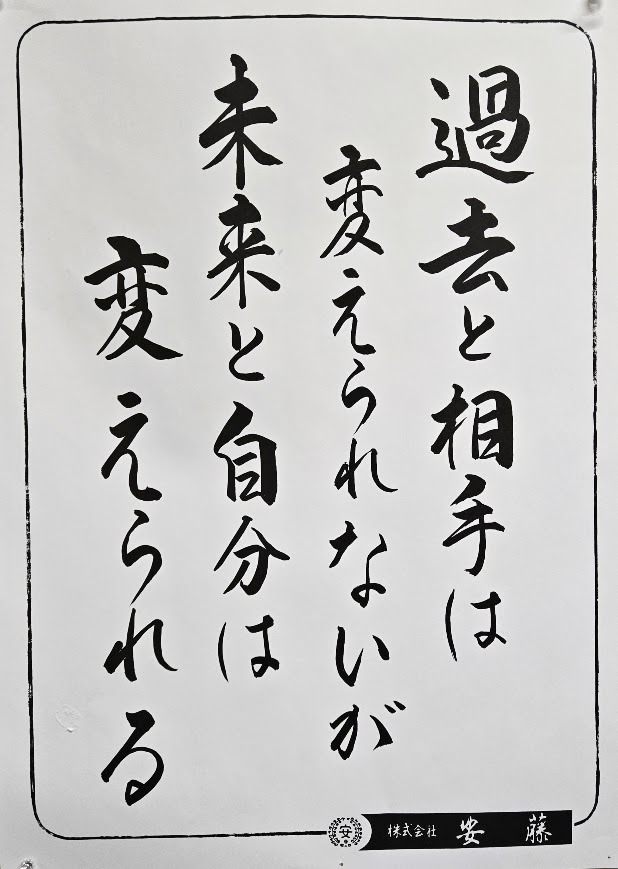 過去と相手は
変えられないが
未来と自分は
変えられる
安
株式会社 安藤